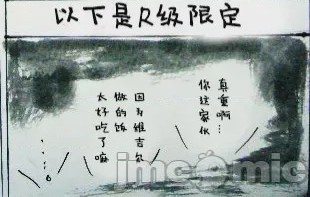 以下是R级限定
真重啊…
你这家伙
因为维吉尔
做的饭
太好吃了嘛
……。
imcomic